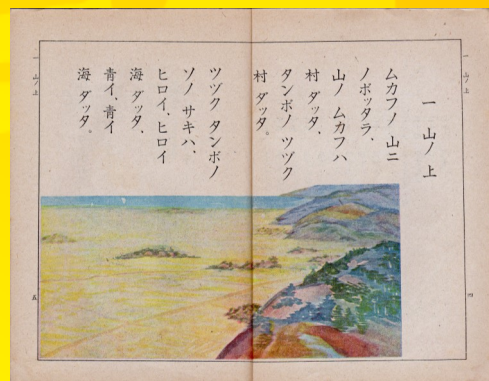 一 山ノ上
四
一 山ノ 上
ムカフノ 山ニ
ノボッタラ、
山ノ ムカフハ
村 ダッタ、
タンボノ ツヅク
村 ダッタ。
ツヅク タンボノ
ソノ サキハ、
ヒロイ、ヒロイ
海 ダッタ、
青イ、青イ
海 ダッタ。
一 山ノ上
五